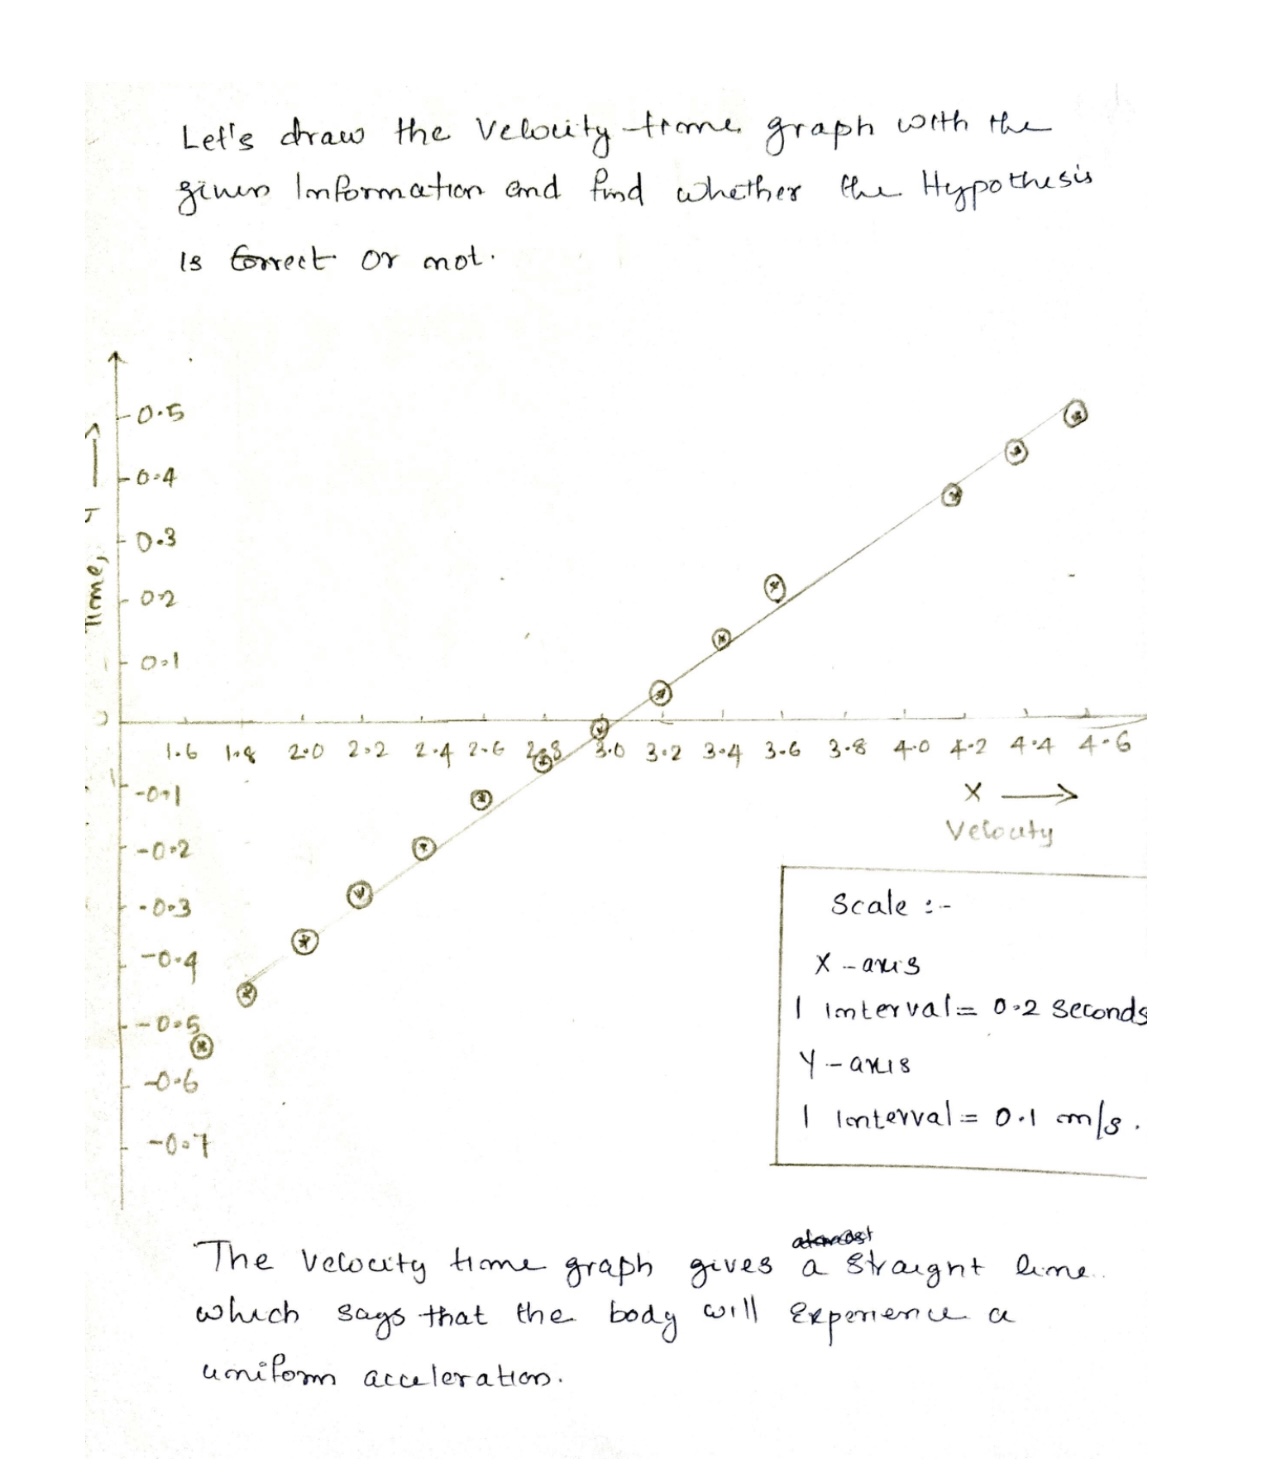 Let's draw the Velocity time graph with the
given Information and find whether the Hypothesis
is Correct or not.
0.5
0.4
0.3
0.2
0.1
Time,
1.6 1.8 2.0 2.2 2.4 2.6 2.8 3.0 3.2 3.4 3.6 3.8 4.0 4.2 4.4 4.6
-0.1
X
Velocity
-0.2
-0.3
-0.4
-0.5
-0.6
-0.7
Scale :-
X - axis
1 interval = 0.2 Seconds
Y - axis
1 Interval = 0.1 m/s.
The Velocity time graph gives a straight line
which says that the body will Experience a
uniform acceleration.